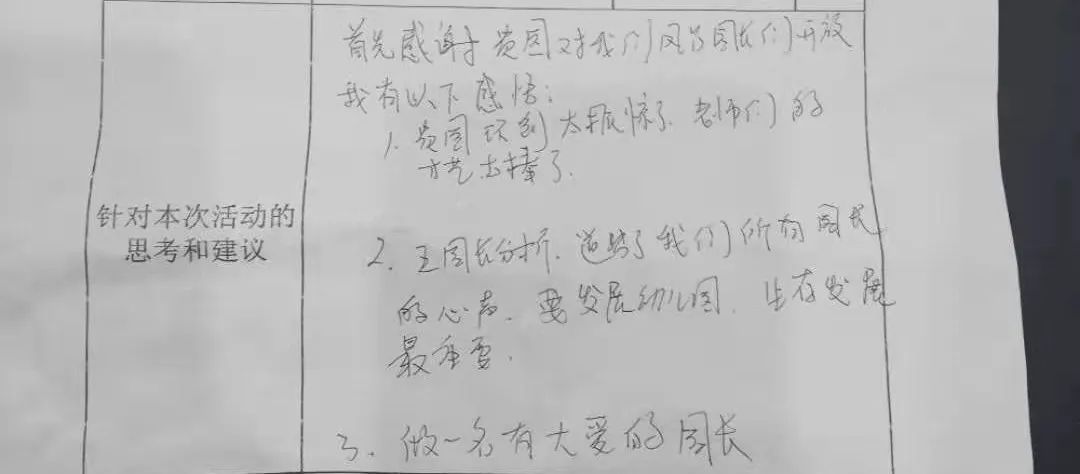 针对本次活动的
思考和建议
首先感谢贵园对我们园长们开放
我有以下感悟：
1. 贵园环创太震惊了. 老师们的
才艺太棒了.
2. 王园长分析. 道出了我们所有园长
的心声. 要发展幼儿园. 生存发展
最重要.
3. 做一名有大爱的园长